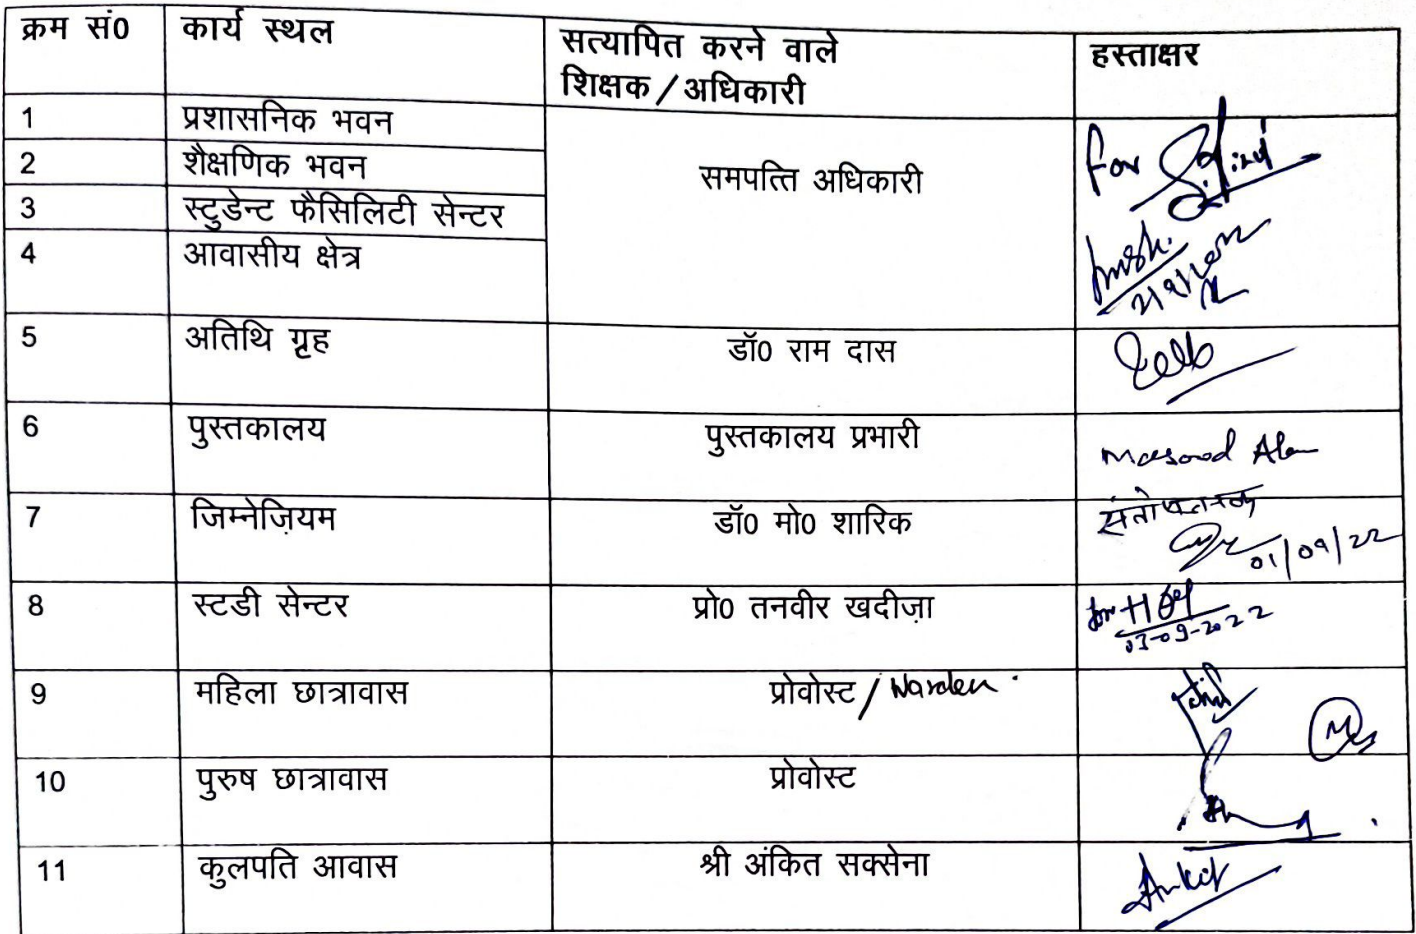 क्रम सं0 कार्य स्थल सत्यापित करने वाले हस्ताक्षर
शिक्षक / अधिकारी
1 प्रशासनिक भवन
2 शैक्षणिक भवन समपत्ति अधिकारी For
3 स्टुडेन्ट फैसिलिटी सेन्टर
4 आवासीय क्षेत्र
5 अतिथि गृह डॉ0 राम दास
6 पुस्तकालय पुस्तकालय प्रभारी Masood Alam
7 जिम्नेज़ियम डॉ0 मो0 शारिक
01/09/22
8 स्टडी सेन्टर प्रो0 तनवीर खदीज़ा
03-09-2022
9 महिला छात्रावास प्रोवोस्ट / Warden
10 पुरुष छात्रावास प्रोवोस्ट
11 कुलपति आवास श्री अंकित सक्सेना Ankit